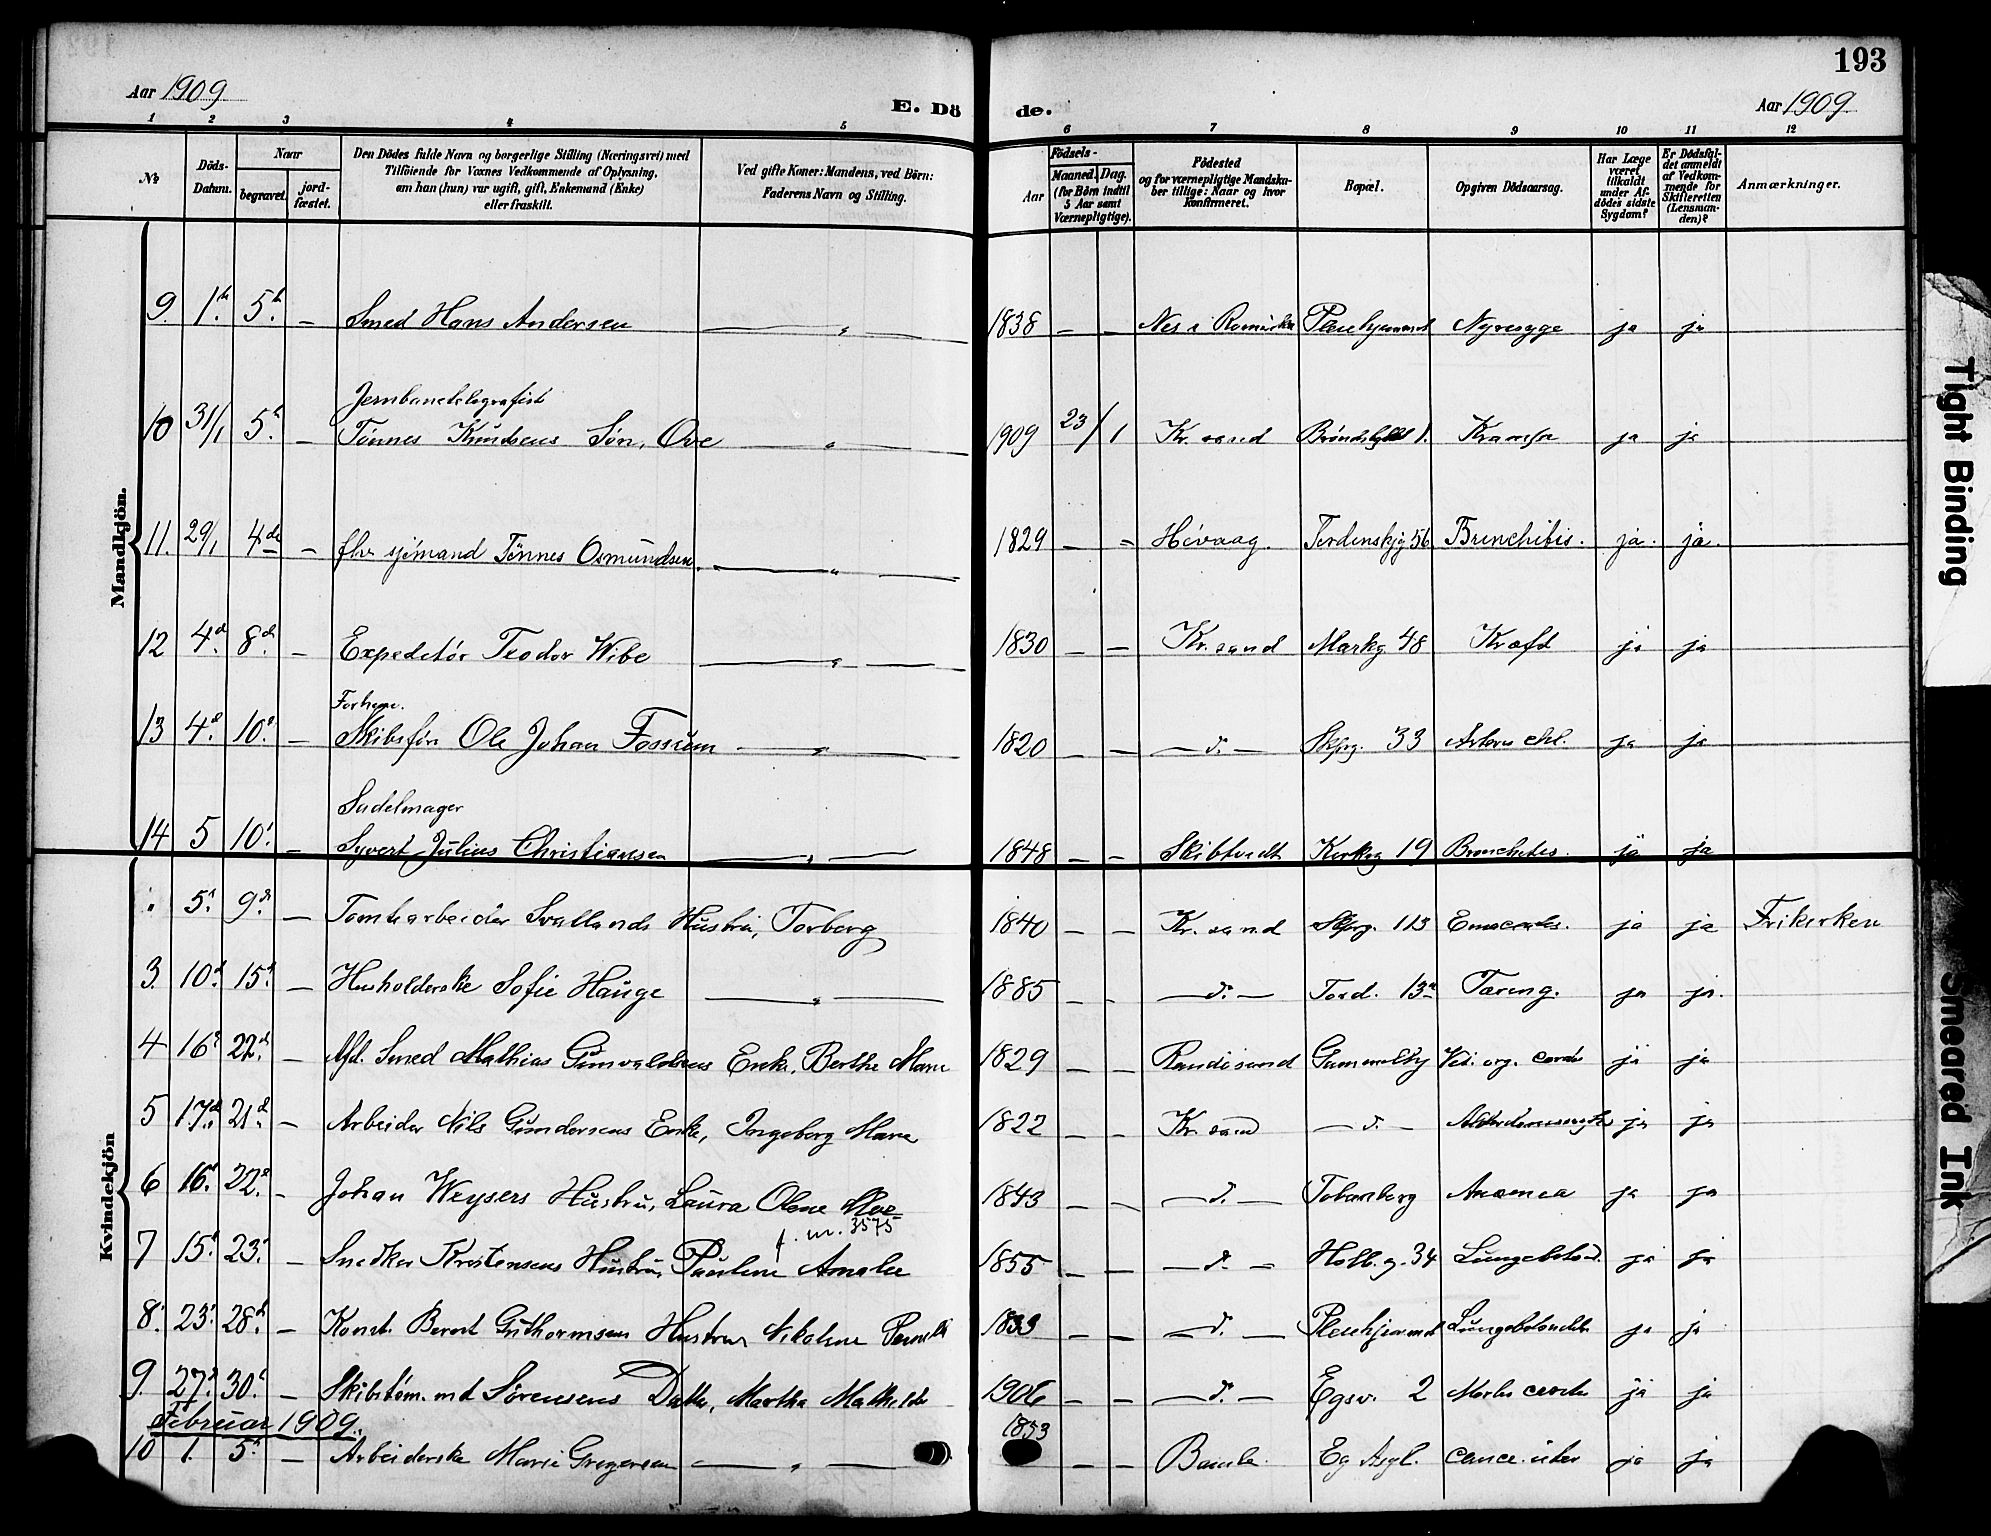 193
Aar 1909
E. Dö
de.
Aar 1909
1 2 3 4 5 6 7 8 9 10 11 12
№
Döds-Datum.
Naar
begravet.
jord-fæstet.
Den Dödes fulde Navn og borgerlige Stilling (Næringsvei) med
Tilföiende for Voxnes Vedkommende af Oplysning,
om han (hun) var ugift, gift, Enkemand (Enke)
eller fraskilt.
Ved gifte Koner: Mandens, ved Börn:
Faderens Navn og Stilling.
Födsels-
Aar
Maaned. Dag.
(for Börn indtil
5 Aar samt
Værnepligtige).
Födested
og for værnepligtige Mandska-
ber tillige: Naar og hvor
konfirmeret.
Bopæl.
Opgiven Dödsaarsag.
Har Læge
været
tilkaldt
under Af-
dödes sidste
Sygdom?
Er Dödsfal-
det anmeldt
af Vedkom-
mende for
Skifteretten
(Lensman-
den)?
Anmærkninger.
Mandkjön.
9. 1. 5. — Smed Hans Andersen — „ — 1838 — — Nes i Nyresyge ja ja
Jernbanetelegrafist
10 31/1 5. — Tönnes Knudsens Sön, Ove — „ — 1909 23/1 Kr.sand Krampe ja ja
11. 29/1 4de — fhv sjömand Tönnes Osmundsen — „ — 1829 — — Hövaag. Tordenskjg 56 Bronchitis. ja. ja.
12 4d. 8d. — Expeditör Teodor Wibe — „ — 1830 — — Kr.sand Markg 48 Kræft ja ja
Forhenv.
13 4d. 10d. — Skibsför Ole Johan Fossum — „ — 1820 — — — d. — Skpg. 33 ja ja
Sadelmager
14 5 10d. — Syvert Julius Christiansen — „ — 1848 — — Skibtvedt Kirkeg 19 Bronchitis. ja ja
Kvindekjön
5. 9d. — Tomtearbeider Svallands Hustru, Torborg 1840 — — Kr.sand Skpg. 113 ja ja Frikirken
3. 10d. 15d. — Husholderske Sofie Hauge — „ — 1885 — — — d. — Tord. 13a Tæring. ja ja.
4 16d. 22d. — Afd. Smed Mathias Gunvaldsens Enke, Berthe Marie 1829 — — Randösund Gammelby Vit. org. cordis ja ja
5 17d. 21d. — Arbeider Nils Gundersens Enke, Ingeborg Marie 1822 — — Kr.sand — d. — ja ja
6 16. 22d. — Johan Weysers Hustru, Laura Olene 1843 — — — d. — Anæmia ja ja
f. m. 3575
7 15. 23. — Snedker Kristensens Hustru, Pauline Amalie 1855 — — — d. — Holb.g. 34 Lungeblød. ja ja
8. 23. 28d. — Konst. Bernt Guthormsens Hustru Nikoline 1833 — — — d. — ja ja
9. 27. 30. — Skibstøm.md Sørensens Datter, Martha Mathilde 1906 — — — d. — Egsv. 2 Morbus cordis ja ja
Februar 1909.
10 1. 5. — Arbeiderske Marie Gregersen — „ — 1853 — — Bamle. Eg Asyl. cancer uteri ja ja
Tight Binding
Smeared Ink